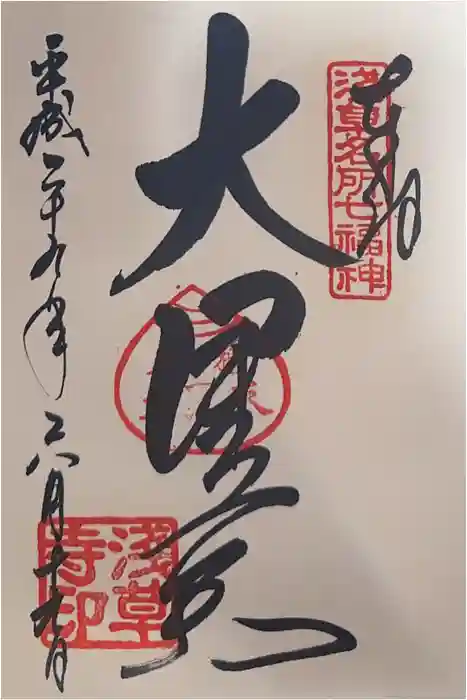 奉拝
浅草名所七福神
大黒天
平成二十九年六月十六日
浅草寺印